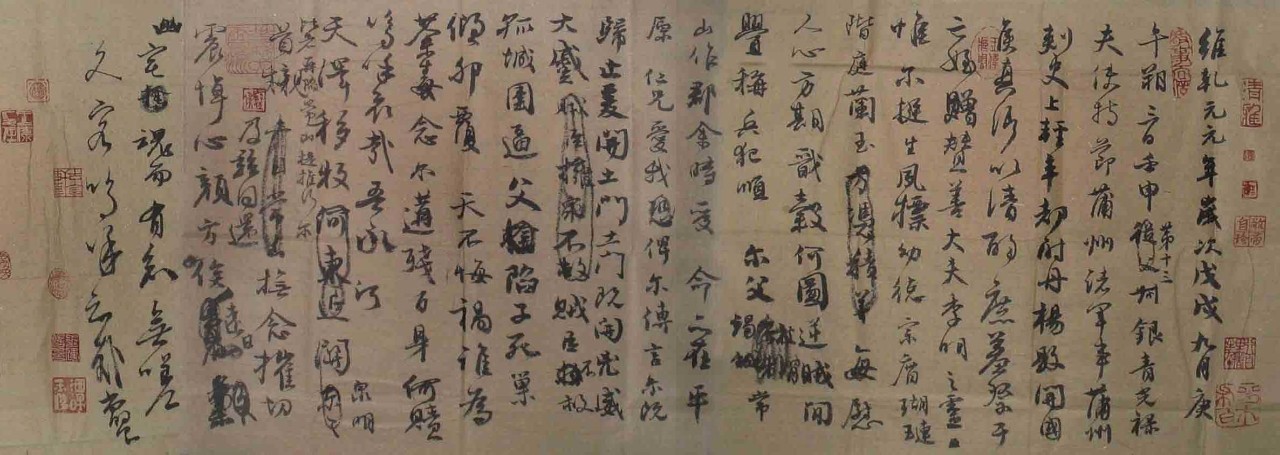 維乾元元年歲次戊戌九月庚
午朔三日壬申第十三叔銀青光祿
夫使持節蒲州諸軍事蒲州
刺史上輕車都尉丹楊縣開國
侯真卿以清酌庶羞祭于
亡姪贈贊善大夫季明之靈曰
惟爾挺生夙標幼德宗廟瑚璉
階庭蘭玉每慰
人心方期戩穀何圖逆賊間
釁稱兵犯順爾父竭誠常
山作郡余時受命亦在平
原仁兄愛我恐俾爾傳言爾既
歸止爰開土門土門既開兇威
大蹙賊臣不救
孤城圍逼父陷子死巢
傾卵覆天不悔禍誰為
荼毒念爾遘殘百身何贖
嗚呼哀哉吾承
天澤移牧河東近關泉明
爾
首櫬及茲同還撫念摧切
震悼心顏方俟遠日
幽宅魂而有知無嗟
久客嗚呼哀哉尚饗